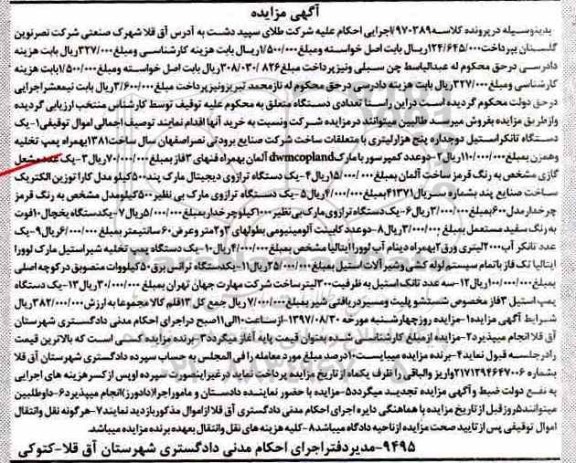 آگهی مزایده
بدینوسیله در پرونده کلاسه ۹۷۰۳۸۹/اجرایی احکام علیه شرکت طلای سپید دشت به آدرس آق قلا شهرک صنعتی شرکت نصر نوین
گلستان بپرداخت ۱۲۴/۶۴۵/۰۰۰ریال بابت اصل خواسته ومبلغ ۱/۵۰۰/۰۰۰ریال بابت هزینه کارشناسی ومبلغ ۳۲۷/۰۰۰ریال بابت هزینه
دادرسی در حق محکوم له عبدالباسط چن سبلی ونیز پرداخت مبلغ ۳۰۸/۰۳۰/۸۲۶ریال بابت اصل خواسته ومبلغ ۱/۵۰۰/۰۰۰بابت هزینه
کارشناسی ومبلغ ۳۲۷/۰۰۰ریال بابت هزینه دادرسی در حق محکوم له ناز محمد تبریز ونیز پرداخت مبلغ ۳/۶۰۰/۰۰۰ریال بابت نیمعشر اجرایی
در حق دولت محکوم گردیده است در این راستا تعدادی دستگاه متعلق به محکوم علیه توقیف توسط کارشناس منتخب ارزیابی گردیده
واز طریق مزایده بفروش میرسد طالبین میتوانند در مزایده شرکت ونسبت به خرید آنها اقدام نمایند توصیف اجمالی اموال توقیفی۱-یک
دستگاه تانکر استیل دوجداره پنج هزار لیتری با متعلقات ساخت شرکت صنایع برودتی نصر اصفهان سال ساخت ۱۳۸۱بهمراه پمپ تخلیه
وهمزن بمبلغ ۱۱۰/۰۰۰/۰۰۰ریال۲-دوعدد کمپرسور با مارک dwmcopland آلمان بهمراه فنهای ۳فاز بمبلغ ۷۰/۰۰۰/۰۰۰ریال۳-یک عدد مشعل
گازی مشخص به رنگ قرمز ساخت آلمان بمبلغ ۱۵/۰۰۰/۰۰۰ریال۴-یک دستگاه ترازوی دیجیتال مارک پند ۵۰۰کیلو مدل کارا توزین الکتریک
ساخت صنایع پند بشماره سریال ۴۱۳۷۱بمبلغ ۴/۰۰۰/۰۰۰ریال۵-یک دستگاه ترازوی مارک بی نظیر ۵۰۰کیلو مدل مشخص به رنگ قرمز
چرخدار مدل ۶۰۰بمبلغ ۳/۰۰۰/۰۰۰ریال۶-یک دستگاه ترازوی مارک بی نظیر ۱۰۰کیلو چرخدار بمبلغ ۵/۰۰۰/۰۰۰ریال۷-یک دستگاه یخچال ۱۰فوت
به رنگ سفید مستعمل بمبلغ ۳/۰۰۰/۰۰۰ریال۸-دوعدد کابینت آلومینیومی بطولهای ۲و۲متر وعرض ۶۰سانتیمتر بمبلغ ۶/۰۰۰/۰۰۰ریال۹-یک
عدد تانکر آب ۲۰۰۰لیتری ورق ۲بهمراه دینام آب لوورا ایتالیا مشخص بمبلغ ۴/۰۰۰/۰۰۰ریال۱۰-یک دستگاه پمپ تخلیه شیر استیل مارک لوورا
ایتالیا تک فاز با تمام سیستم لوله کشی وشیر آلات استیل بمبلغ ۲۵/۰۰۰/۰۰۰ریال۱۱-یک دستگاه ترانس برق ۵۰کیلووات منصوب در کوچه اصلی
بمبلغ ۱۰۰/۰۰۰/۰۰۰ریال۱۲-سه عدد تانک استیل به ظرفیت ۳۰۰لیتر ساخت شرکت مهارت جهان تهران بمبلغ ۳۰/۰۰۰/۰۰۰ریال۱۳-یک دستگاه
پمپ استیل ۳فاز مخصوص شستشو پلیت ومسیر دریافتی شیر بمبلغ ۷/۰۰۰/۰۰۰ریال جمع کل ۱۳قلم کالا مجموعا به ارزش ۳۸۲/۰۰۰/۰۰۰ریال
شرایط آگهی مزایده۱-مزایده روز چهارشنبه مورخه ۱۳۹۷/۰۸/۳۰-از ساعت ۱۰الی ۱۱صبح در اجرای احکام مدنی دادگستری شهرستان
آق قلا انجام میپذیرد۲-مزایده از مبلغ کارشناسی شده بعنوان قیمت پایه آغاز میگردد۳-برنده مزایده کسی است که بالاترین قیمت
را در جلسه قبول نماید۴-برنده مزایده میبایست ۱۰درصد مبلغ مورد معامله را فی المجلس به حساب سپرده دادگستری آق قلا
بشماره ۲۱۷۱۲۹۴۶۴۷۰۰۶واریز والباقی را ظرف یکماه از تاریخ مزایده پرداخت نماید در غیر اینصورت سپرده اوپس از کسر هزینه های اجرایی
به نفع دولت ضبط و آگهی مزایده تجدید میگردد۵-مزایده با حضور نماینده دادستان و مامور اجرا(دادورز)انجام میپذیرد۶-داوطلبین
میتوانند ۵روز قبل از تاریخ مزایده با هماهنگی دایره اجرای احکام مدنی دادگستری آق قلا از اموال مذکور بازدید نمایند۷-هر گونه نقل وانتقال
اموال توقیفی پس از تایید صحت مزایده از ناحیه دادگاه میباشد۸-کلیه هزینه های نقل وانتقال بعهده برنده مزایده میباشد.
۹۴۹۵-مدیر دفتر اجرای احکام مدنی دادگستری شهرستان آق قلا-کتوکی